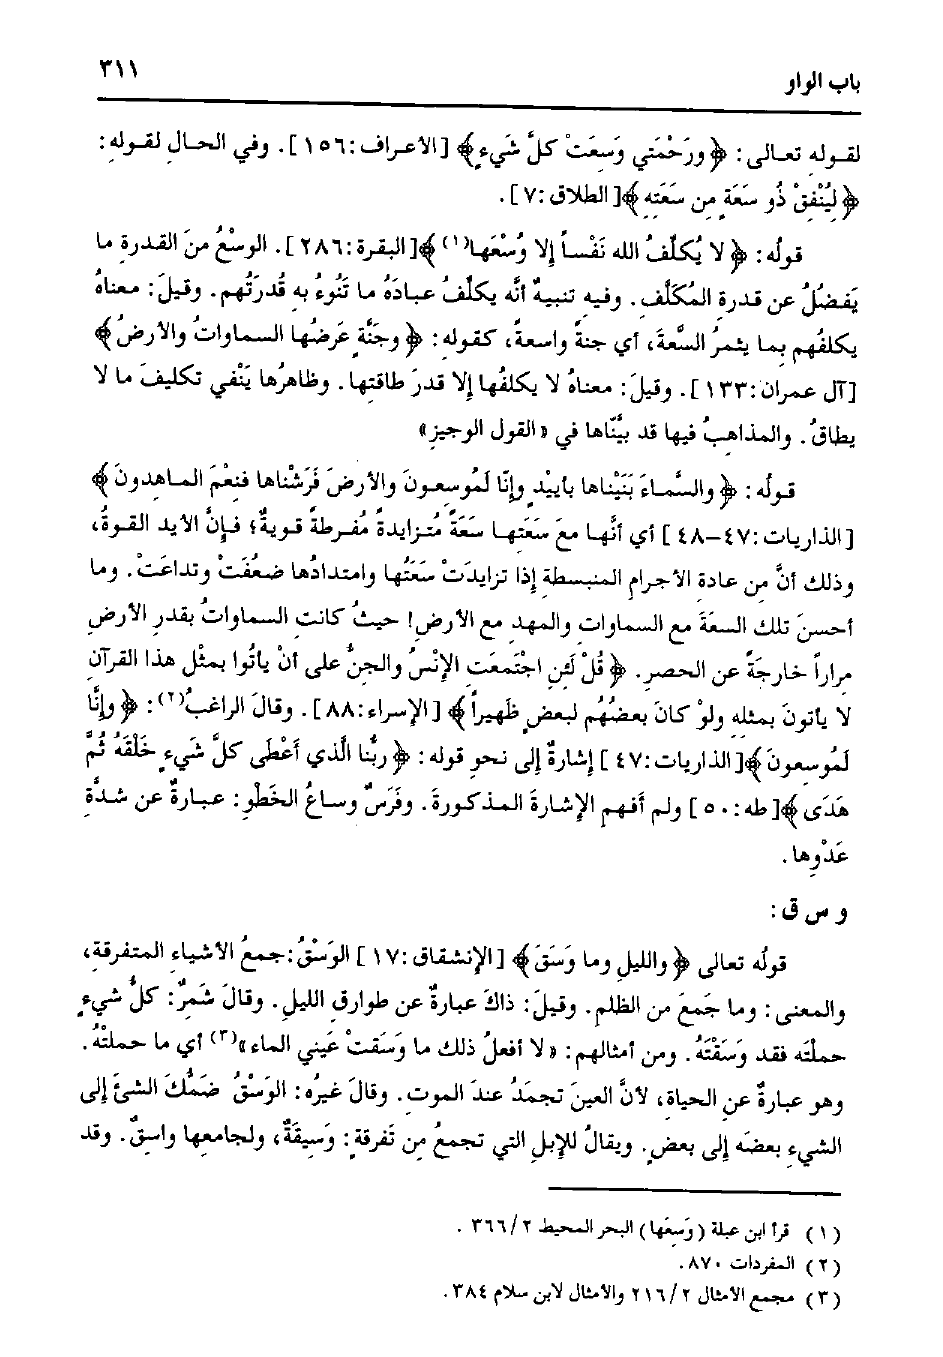 باب الواو
٣١١
لقـولهِ تعـالى: ﴿ورَحْمَتي وَسِعَتْ كلَّ شَيءٍ﴾ [الأعـراف:١٥٦]. وفي الحـالِ لقـولهِ:
﴿لِيُنْفِقْ ذُو سَعَةٍ مِن سَعَتِهِ﴾[الطلاق:٧].
قولُه: ﴿لا يُكلِّفُ الله نَفْساً إلا وُسْعَها(١)﴾[البقرة:٢٨٦]. الوسْعُ منَ القدرةِ ما
يَفضُلُ عن قدرةِ المُكَلَّفِ. وفيهِ تنبيهٌ أنَّه يكلِّفُ عبادَهُ ما تَنُوءُ به قُدرَتُهم. وقيلَ: معناهُ
يكلفُهم بما يثمرُ السَّعةَ، أي جنةً واسعةً، كقولهِ: ﴿وجَنَّةٍ عَرضُها السماواتُ والأرضُ﴾
[آل عمران:١٣٣]. وقيلَ: معناهُ لا يكلفُها إلا قدرَ طاقتِها. وظاهرُها يَنْفي تكليفَ ما لا
يطاقُ. والمذاهبُ فيها قد بيَّناها في «القول الوجيز»
قـولُه: ﴿والسَّماءَ بَنَيْناها بأييْدٍ وإنّا لَمُوسِعـونَ والأرضَ فَرَشْناها فنِعْمَ المـاهِدونَ﴾
[الذاريات:٤٧-٤٨] أي أنَّهـا معَ سَعَتِهـا سَعَةً مُتـزايدةً مُفـرطةً قـويةٌ؛ فـإنَّ الأيد القـوةُ،
وذلك أنَّ مِن عادةِ الأجرامِ المنبسطةِ إذا تزايدَتْ سَعَتُها وامتدادُها ضعُفَتْ وتداعَتْ. وما
أحسنَ تلك السعَةَ مع السماوات والمهد مع الأرض! حيثُ كانت السماواتُ بقدرِ الأرضِ
مراراً خارجَةً عن الحصرِ. ﴿قُلْ لَئنِ اجْتمعَت الإنْسُ والجنُّ على أنْ يأتُوا بمثْلِ هذا القرآنِ
لا يأتونَ بمثلهِ ولوْ كانَ بعضُهُم لبعضٍ ظَهيراً﴾ [الإسراء:٨٨]. وقالَ الراغبُ(٢): ﴿وإنَّا
لَمُوسعونَ﴾[الذاريات:٤٧] إشارةٌ إلى نحوِ قوله: ﴿ربُّنا الَّذي أَعْطَى كلَّ شَيءٍ خَلْقَهُ ثُمَّ
هَدَى﴾[طه:٥٠] ولم أفهم الإشارةَ المذكورةَ. وفَرَسٌ وساعُ الخَطْوِ: عبارةٌ عن شدَّةِ
عَدْوِها.
و س ق:
قولُه تعالى ﴿والليلِ وما وَسَقَ﴾ [الإنشقاق:١٧] الوَسْقُ:جمعُ الأشياءِ المتفرقةِ،
والمعنى: وما جَمعَ من الظلم. وقيلَ: ذاكَ عبارةٌ عن طوارقِ الليلِ. وقالَ شَمِرٌ: كلُّ شيءٍ
حملتَه فقد وَسَقْتَهُ. ومن أمثالهم: «لا أفعلُ ذلك ما وَسَقتْ عَيني الماء»(٣) أي ما حملتْهُ.
وهو عبارةٌ عنِ الحياة، لأنَّ العينَ تجمَدُ عندَ الموت. وقالَ غيرُه: الوَسْقُ ضَمُّكَ الشئَ إلى
الشيءِ بعضَه إلى بعضٍ. ويقالُ للإبلِ التي تجمعُ مِن تَفرقةٍ: وَسِيقَةٌ، ولجامعِها واسِقٌ. وقد
(١) قرأ ابن عبلة (وَسِعَها) البحر المحيط ٢/٣٦٦.
(٢) المفردات ٨٧٠.
(٣) مجمع الأمثال ٢/٢١٦ والأمثال لابن سلام ٣٨٤.